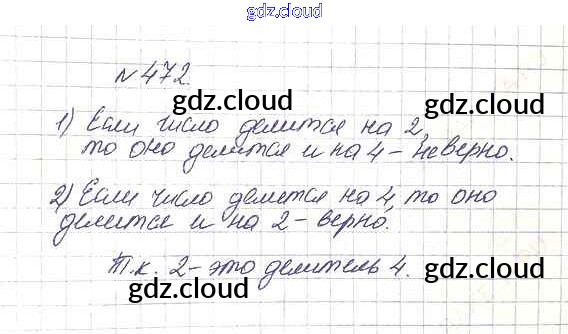 gdz.cloud
№ 472.
gdz.cloud
gdz.cloud
1) Если число делится на 2,
то оно делится и на 4 – неверно.
gdz.cloud
gdz.cloud
2) Если число делится на 4, то оно
делится и на 2 – верно.
Т.к. 2 – это делитель 4.
gdz.cloud
gdz.cloud